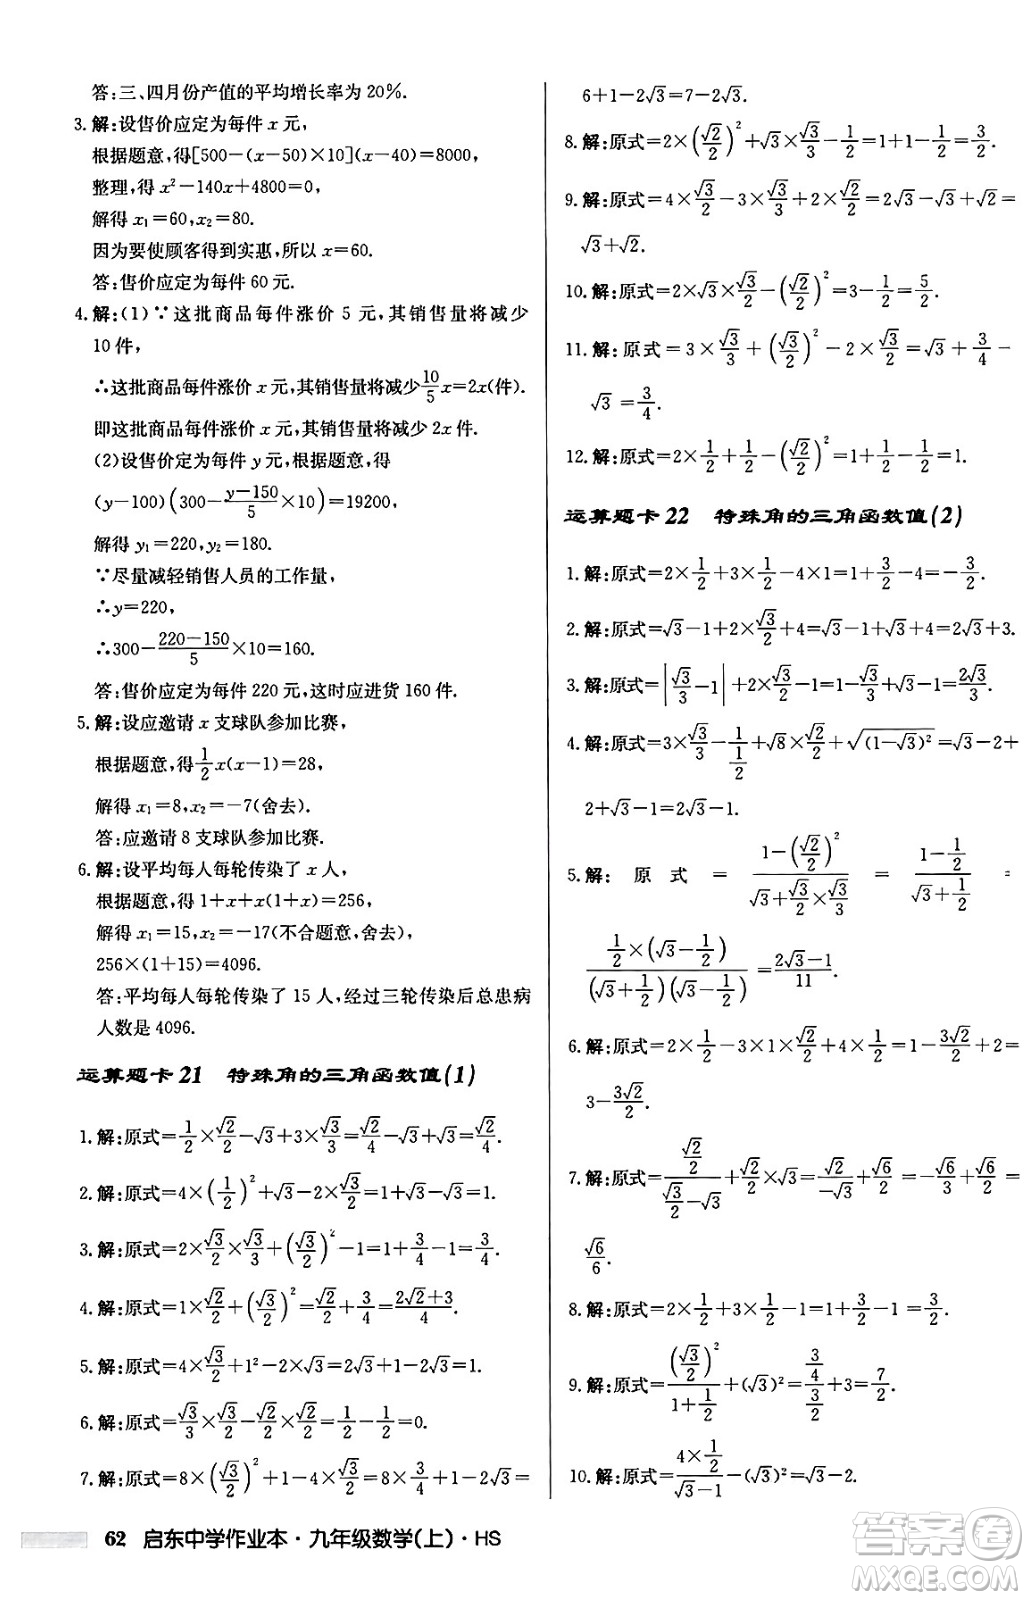 答:三、四月份产值的平均增长率为20%.
3. 解:设售价应定为每件 x 元,
根据题意,得[500-(x-50)×10](x-40)=8000,
整理,得 x²-140x+4800=0,
解得 x₁=60,x₂=80.
因为要使顾客得到实惠,所以 x=60.
答:售价应定为每件 60 元.
4. 解:(1)∵这批商品每件涨价 5 元,其销售量将减少
10 件,
∴这批商品每件涨价 x 元,其销售量将减少10/5 x=2x(件).
即这批商品每件涨价 x 元,其销售量将减少 2x 件.
(2)设售价定为每件 y 元,根据题意,得
(y-100)(300-(y-150)/5×10)=19200,
解得 y₁=220,y₂=180.
∵尽量减轻销售人员的工作量,
∴y=220,
∴300-(220-150)/5×10=160.
答:售价应定为每件 220 元,这时应进货 160 件.
5. 解:设应邀请 x 支球队参加比赛,
根据题意,得1/2 x(x-1)=28,
解得 x₁=8,x₂=-7(舍去).
答:应邀请 8 支球队参加比赛.
6. 解:设平均每人每轮传染了 x 人,
根据题意,得 1+x+x(1+x)=256,
解得 x₁=15,x₂=-17(不合题意,舍去).
256×(1+15)=4096.
答:平均每人每轮传染了 15 人,经过三轮传染后总患病
人数是 4096.
运算题卡 21 特殊角的三角函数值(1)
1. 解:原式=1/2×√2/2-√3+3×√3/3=√2/4-√3+√3=√2/4.
2. 解:原式=4×(1/2)²+√3-2×√3/2=1+√3-√3=1.
3. 解:原式=2×√3/2×√3/3+(√3/2)²-1=1+3/4-1=3/4.
4. 解:原式=1×√2/2+(√3/2)²=√2/2+3/4=(2√2+3)/4.
5. 解:原式=4×√3/2+1²-2×√3=2√3+1-2√3=1.
6. 解:原式=√3/3×√3/2+√2/2×√2/2-1=1/2+1/2-1=0.
7. 解:原式=8×(√3/2)²+1-4×√3/2=8×3/4+1-2√3=
6+1-2√3=7-2√3.
8. 解:原式=2×(√2/2)²+√3×√3/3-1/2=1+1-1/2=3/2.
9. 解:原式=4×√3/2-3×√3/3+2×√2/2=2√3-√3+√2=
√3+√2.
10. 解:原式=2×√3×√3/2-(√2/2)²=3-1/2=5/2.
11. 解:原式=3×√3/3+(√3/2)²-2×√3/2=√3+3/4-
√3=3/4.
12. 解:原式=2×1/2×1/2+(√2/2)²=1/2+1/2=1.
运算题卡 22 特殊角的三角函数值(2)
1. 解:原式=2×1/2+3×1/2-4×1=1+3/2-4=-3/2.
2. 解:原式=√3-1+2×√3/2+4=√3-1+√3+4=2√3+3.
3. 解:原式=|√3/3-1|+2×√3/2-1=... √3/3+√3-1=2√3/3.
4. 解:原式=3×√3/3-1/(1/2)+√8×√2/2+√((1-√3)²)=√3-2+
2+√3-1=2√3-1.
5. 解:原式=(1-(√2/2)²)/(√3+√3/2×√3/3)=(1-1/2)/(√3+1/2)=
(1/2×(√3-1/2))/((√3+1/2)(√3-1/2))=(2√3-1)/11.
6. 解:原式=2×1/2-3×√2/2+4×1/2=1-3√2/2+2=
3-3√2/2.
7. 解:原式=(√2/2)/(√3/2-√3)+√2/2×√3=√2/(-√3)+√6/2=-√6/3+√6/2=
√6/6.
8. 解:原式=2×1/2+3×1/2-1=1+3/2-1=3/2.
9. 解:原式=(√3/2)²/(1+1/2)+(√3)²=(3/4)/(3/2)+3=7/2.
10. 解:原式=(4×1/2)/(√3-1)-(√3)²=√3-2.
62 启东中学作业本·九年级数学(上)·HS
作业精灵
MZXUE.COM